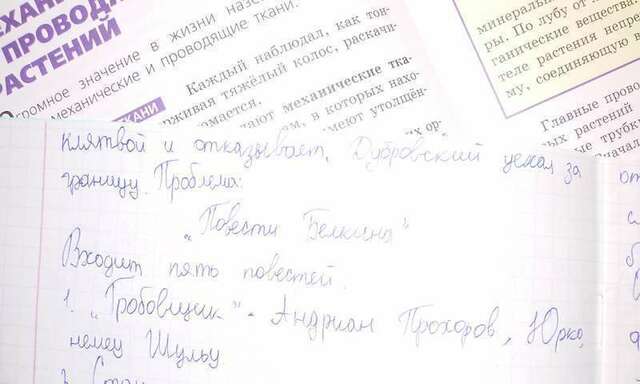 МЕХАНИ
ПРОВОД
РАСТЕНИЙ
Огромное значение в жизни назе
механические и проводящие ткани.
ТКАНИ
Каждый наблюдал, как тон-
рживая тяжёлый колос, раскачи-
омается.
ают механические тка-
м, в которых нахо-
меют утолщён-
ых ор-
минераль
ры. По лубу от л
ганические вещества.
теле растения непр
му, соединяющую в
Главные прово
ых растений
ые трубки
Сначал
клятвой и отказывает. Дубровский уехал за
границу. Проблема:
„Повести Белкина"
Входит пять повестей.
1. „Гробовщик" - Андриан Прохоров, Юрко,
немец Шульц